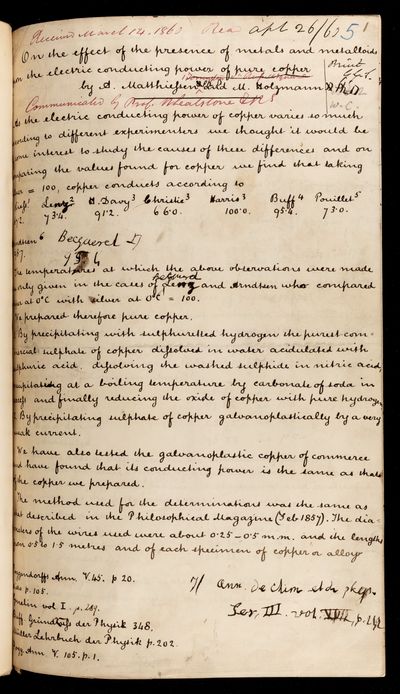 Received March 14. 1860 Read apl 26/60 5 1
On the effect of the presence of metals and metalloids
on the electric conducting power of pure copper
by A. Matthiessen and M. Holzmann Ph.D
Communicated by Prof. Wheatstone F.R.S
Print
W.C.
As the electric conducting power of copper varies so much
according to different experimenters we thought it would be
some interest to study the causes of these differences and on
comparing the values found for copper we find that taking
= 100, copper conducts according to
Lenz 2 H. Davy 3 Christie 3 Harris 3 Buff 4 Pouillet 5
73.4. 91.2. 66.0. 100.0. 95.4. 73.0.
Arndtsen 6 Becquerel 7
The temperatures at which the above observations were made
only given in the cases of Lenz Becquerel and Arndtsen who compared
at 0°C with silver at 0°C = 100.
We prepared therefore pure copper.
By precipitating with sulphuretted hydrogen the purest com-
mercial sulphate of copper dissolved in water acidulated with
sulphuric acid. dissolving the washed sulphide in nitric acid,
precipitating at a boiling temperature by carbonate of soda in
excess and finally reducing the oxide of copper with pure hydrogen
2. By precipitating sulphate of copper galvanoplastically by a very
weak current.
We have also tested the galvanoplastic copper of commerce
and have found that its conducting power is the same as that
of the copper we prepared.
The method used for the determinations was the same as
that described in the Philosophical Magazine (Feb 1857). The dia-
meters of the wires used were about 0.25 - 0.5 m.m. and the lengths
0.5 to 1.5 metres and of each specimen of copper or alloy
Poggendorffs Ann. V. 45. p 20.
p. 105.
Gmelin vol I.
Buff. Grundzüge der Physik 348.
Müller Lehrbuch der Physik p. 202.
Pogg. Ann. V. 105. p. 1.
7/ Ann. de Chim et de phys.
Ser. III. vol. XVII, p. 242